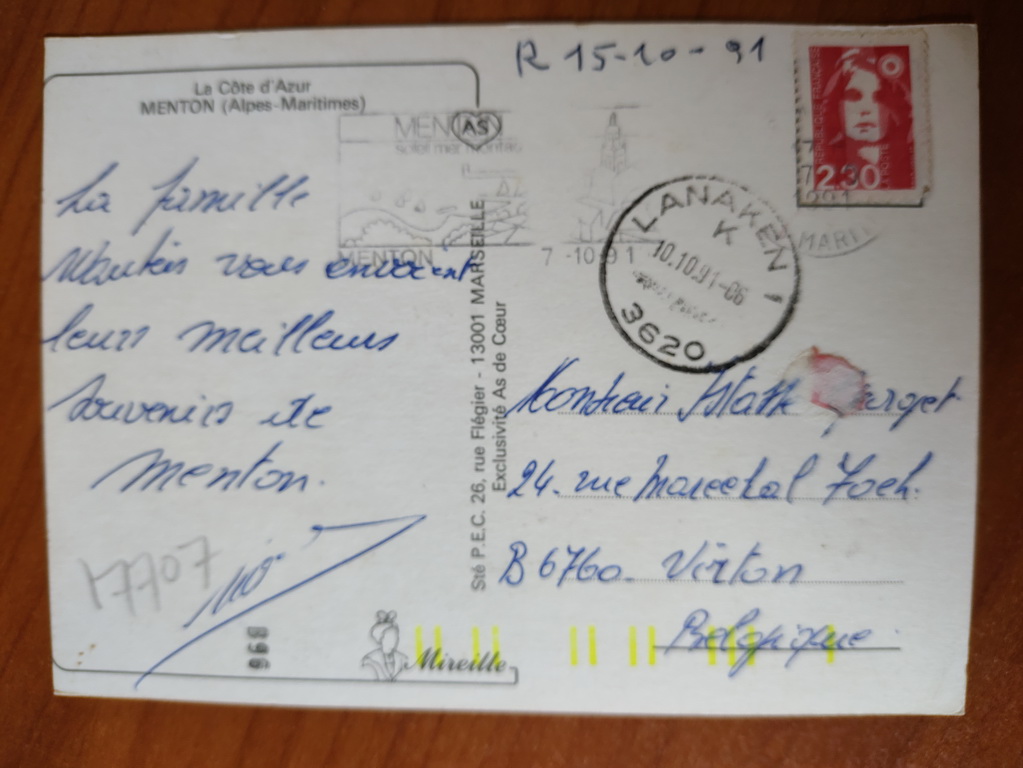 La Côte d'Azur
MENTON (Alpes-Maritimes)
R 15-10-91
RÉPUBLIQUE FRANÇAISE
LA POSTE
2.30
MENTON
AS
soleil mer montagne
MENTON
7-10 91
LANAKEN 1
K
10.10.91-06
3620
La famille
vous envoient
leurs meilleurs
souvenirs de
Menton.
Sté P.E.C. 26, rue Flégier - 13001 MARSEILLE
Exclusivité As de Cœur
24. rue Marechal Foch.
B 6760. Virton
Belgique
17707
968
Mireille